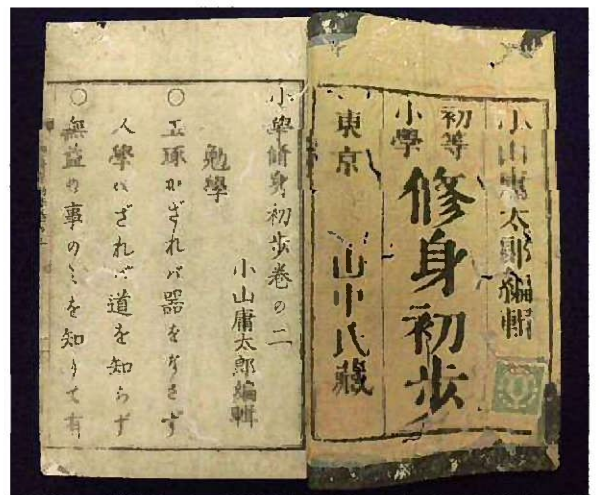 小山庸太郎編輯
初等
小學
修身初歩
東京
山中氏藏
小學脩身初歩巻の二
小山庸太郎編輯
勉學
○玉琢かざれバ器をなさず
人學バざれバ道を知らず
○無益の事のミを知りて有